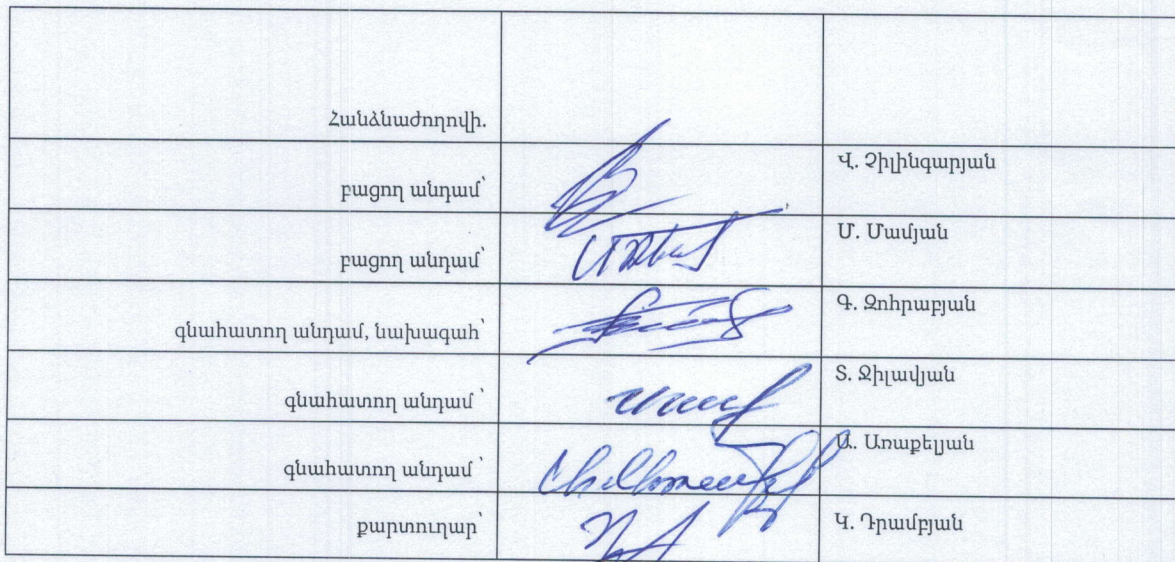 Հանձնաժողովի.
բացող անդամ՝ Վ. Չիլինգարյան
բացող անդամ՝ Մ. Մամյան
գնահատող անդամ, նախագահ՝ Գ. Զոհրաբյան
գնահատող անդամ ՝ Տ. Ջիլավյան
գնահատող անդամ ՝ Ա. Առաքելյան
քարտուղար՝ Կ. Դրամբյան